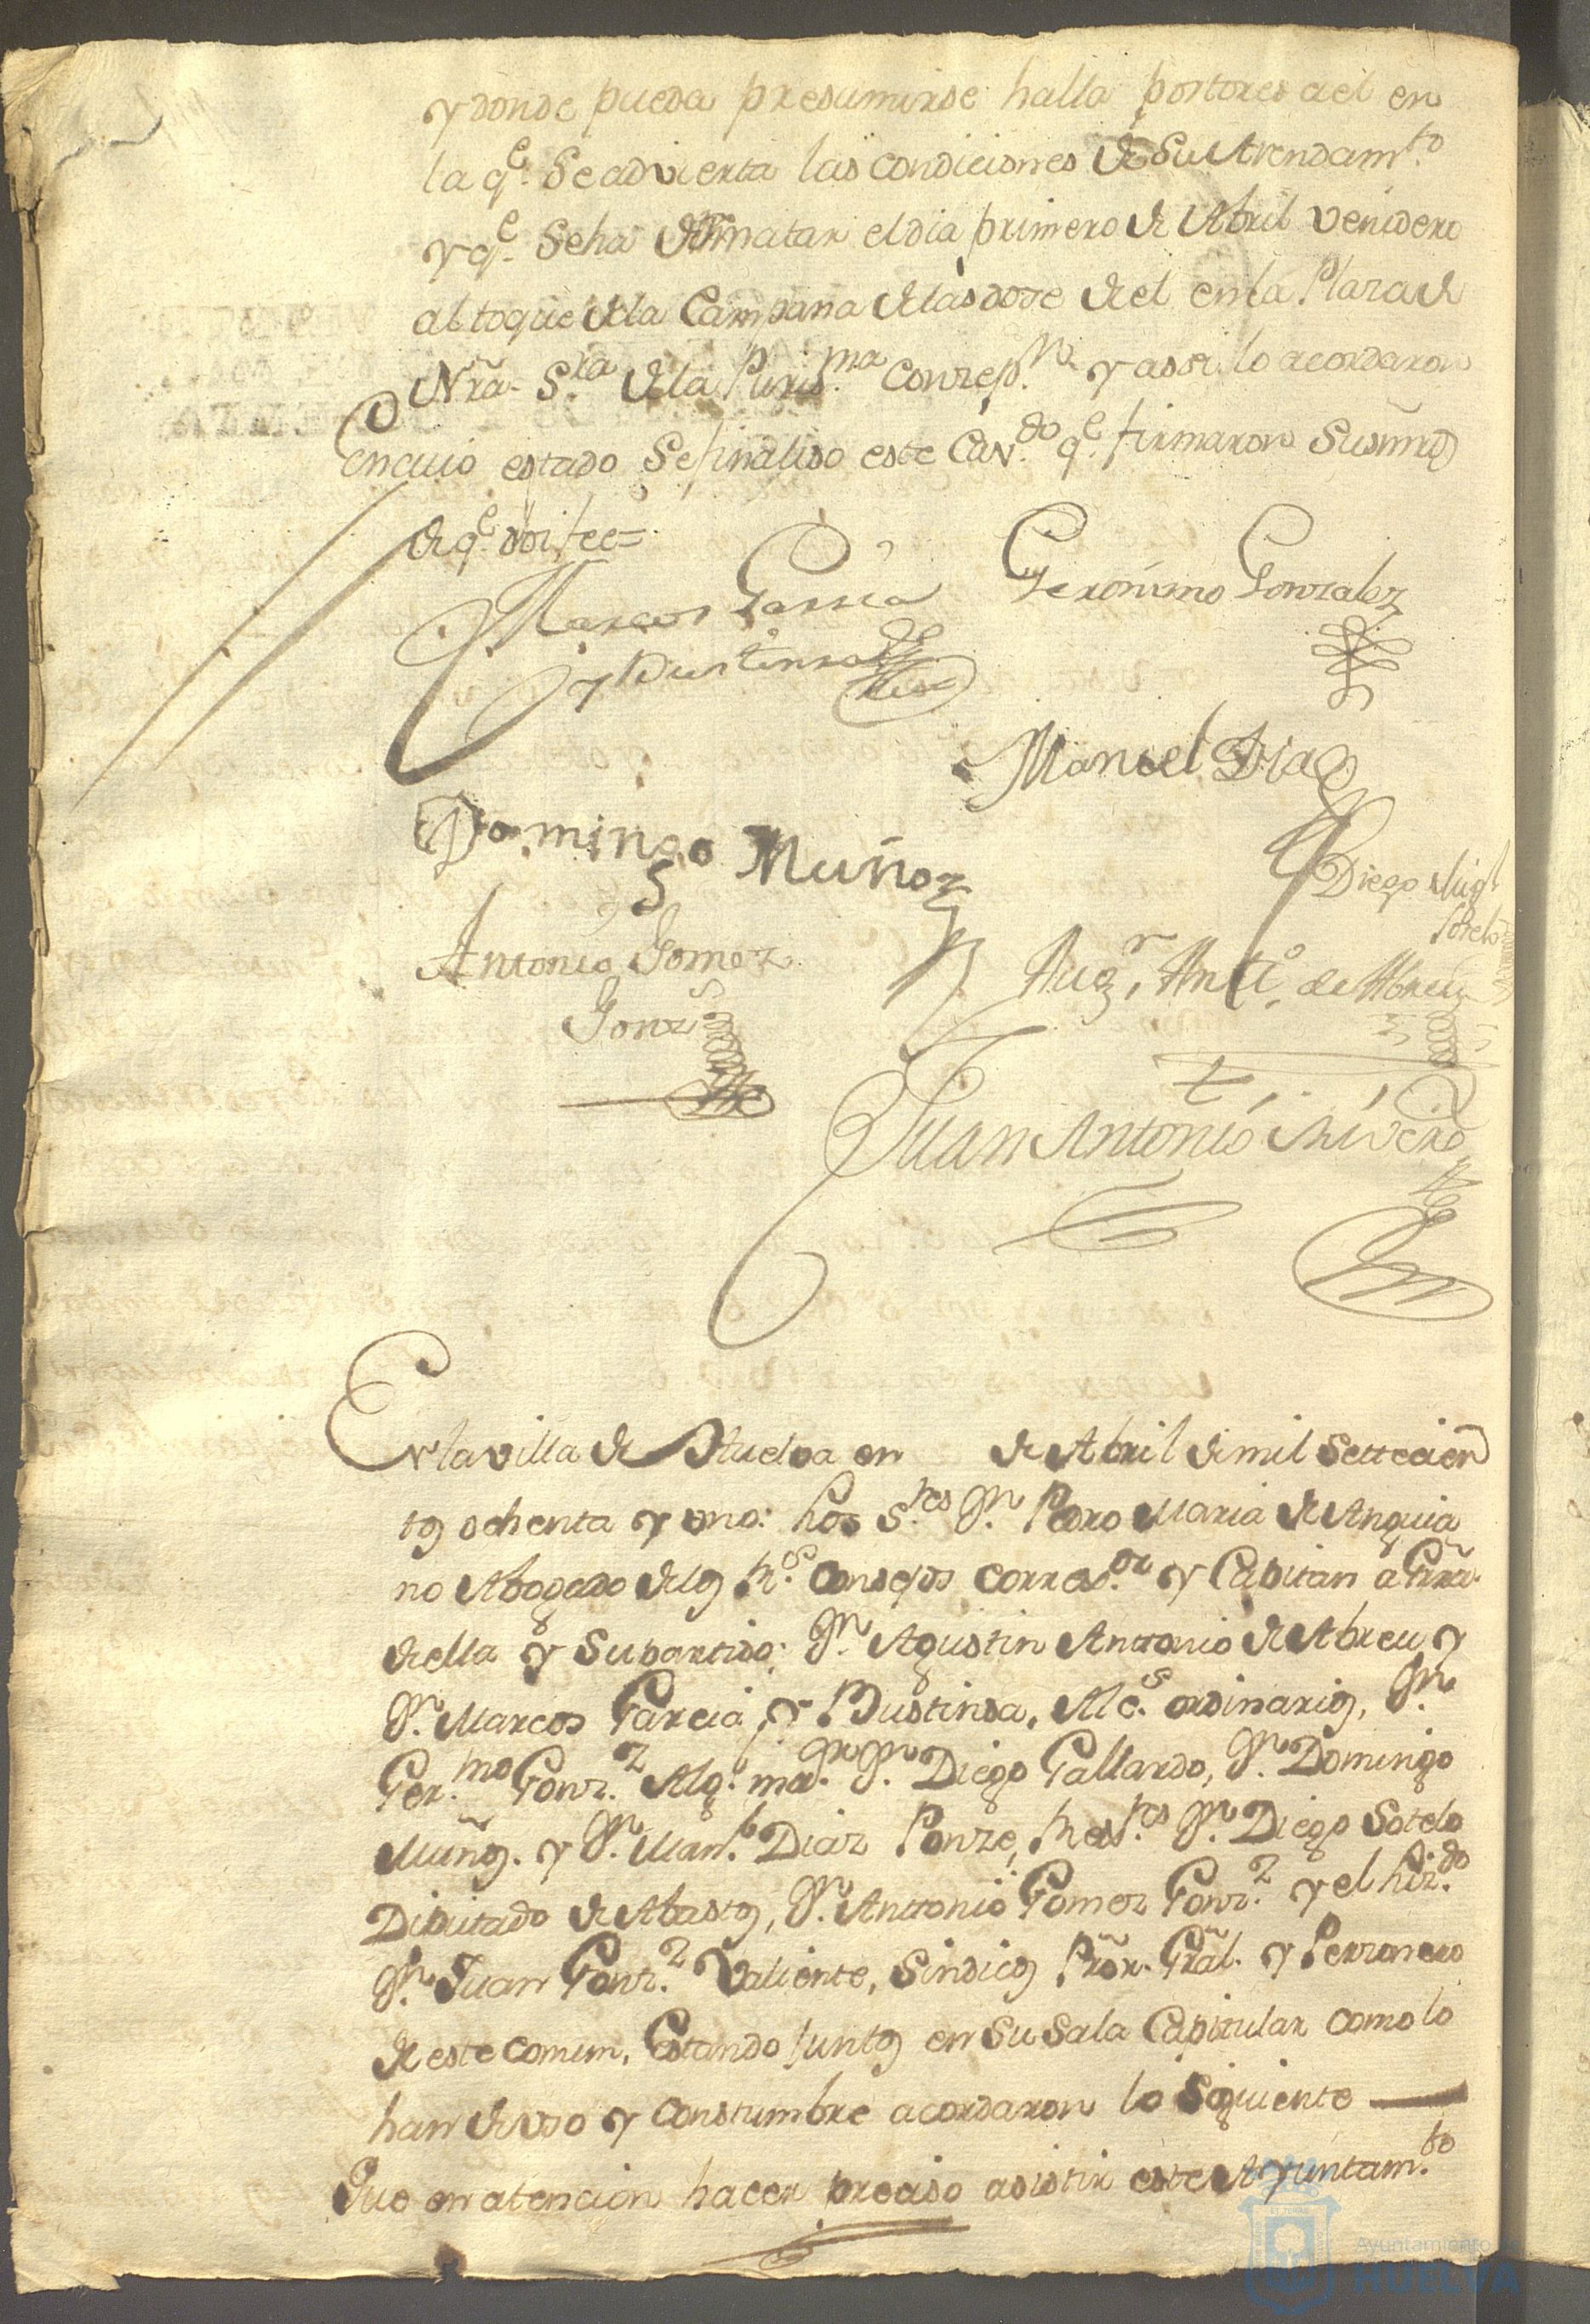 y donde pueda presumirse halla postores del en
la q.e Se advierta las condiciones de Su Arrendam.to
y q.e Seha de Rematar el dia primero de Abril venidero
al toque dela Campana delas doze del en la Plaza de
Nrã S.ra de la Puris.ma Conzep.n y assi lo acordaron
en cuio estado Sefinaliso este Cav.do q.e firmaron Susmrds
de q.e doi fee=
Marcos Garcia
y Bustinsa
Geronimo Gonzalez
Manuel Diaz
Domingo Muñoz
Diego Mig.l
Sotelo
Antonio Gomez
Gonz
Aug.n Ant.o de Abreu
Juan Antonio Rivero
En la villa de Huelva en de Abril de mil Settecien
tos ochenta y uno: Los S.res D.n Pedro Maria de Anguia
no Abogado delos R.s Consejos Correg.or y Capitan a Grrã
de ella y Su partido; D.n Agustin Anttonio de Abreu y
D.n Marcos Garcia, y Bustinsa, Alc.s ordinarios, D.n
Ger.mo Gonz.z Alg.l ma.or D.n Diego Gallardo, D.n Domingo
Muñoz. y D.n Man.l Diaz Ponze, Rex.res D.n Diego Sotelo
Diputado de Abastos, D.n Anttonio Gomez Gonz.z y el Liz.do
D.n Juan Gonz.z Valiente, Sindicos Prõr. Grãl. y Perzonero
de este comun, Estando Juntos en Su Sala Capitular como lo
han de uso y constumbre acordaron lo Siguiente
Que en atencion hacer preciso asistir este Ayuntam.to
Ayuntamiento
HUELVA